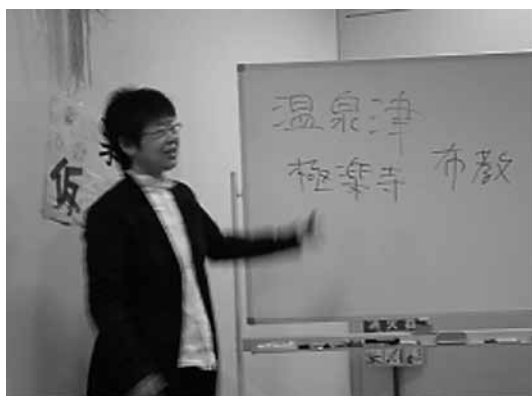 温泉津
極楽寺 布教
仮